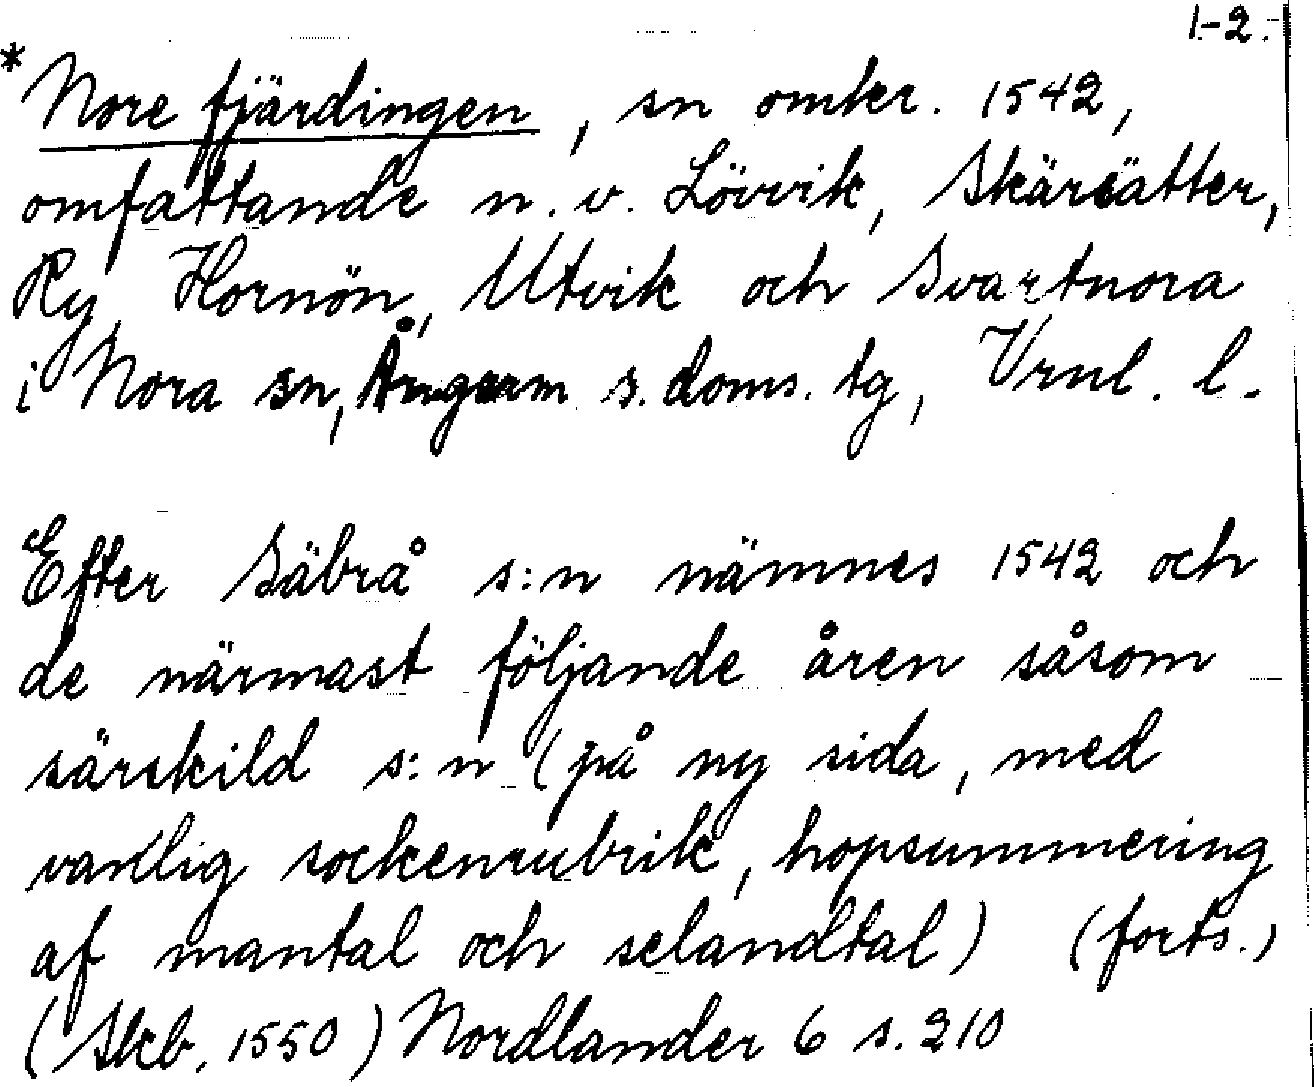 1-2.
* Nore fjärdingen, sn omkr. 1542,
omfattande n.v. Lövvik, Skärsätter,
Ry, Hornön, Utvik och Svartnora
i Nora sn, Ångerm s. doms. tg, Vrnl. l.
Efter Säbrå s:n nämnes 1542 och
de närmast följande åren såsom
särskild s:n (på ny sida, med
vanlig sockenrubrik, hopsummering
af mantal och selandtal) (forts.)
(Skb. 1550) Nordlander 6 s. 210